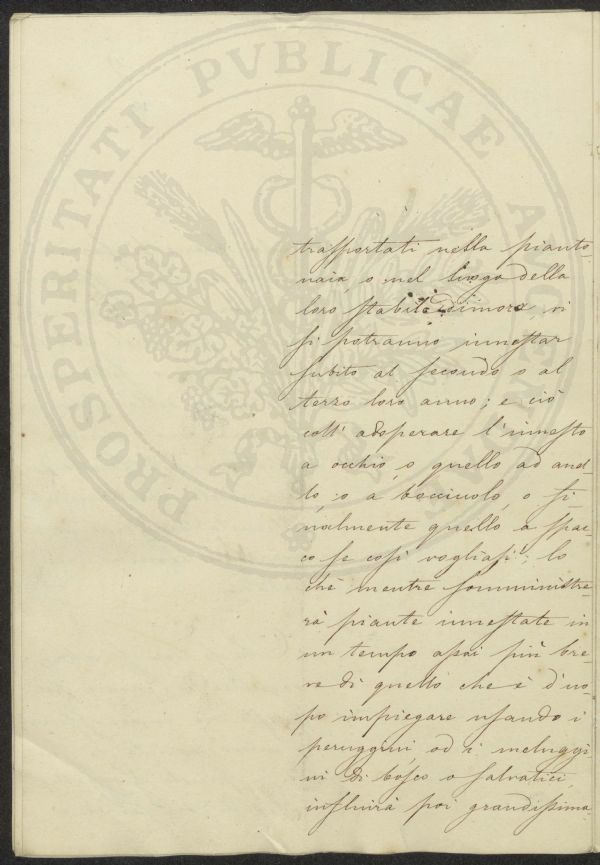 PROSPERITATI PVBLICAE
trasportati nella pianto
naia o nel luogo della
loro stabile dimora, vi
si potranno innestar
subito al secondo o al
terzo loro anno; e ciò
coll' adoperare l'innesto
a occhio, o quello ad anel
lo, o a bocciuolo, o fi
nalmente quello a spac
co se così vogliasi; lo
chè mentre somministre
rà piante innestate in
un tempo assai più bre
ve di quello che è d'uo
po impiegare usando i
peruggini, od i meluggi
ni di bosco o salvatici,
influirà poi grandissima